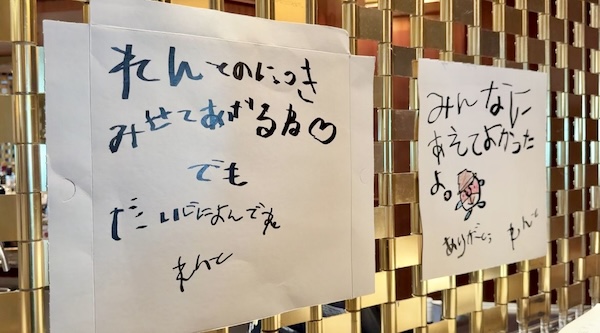 れんとのにっき
みせてあげるね♡
でも
だいじによんでね
れんと
みんなに
あえてよかった
よ。
ありがとう れんと